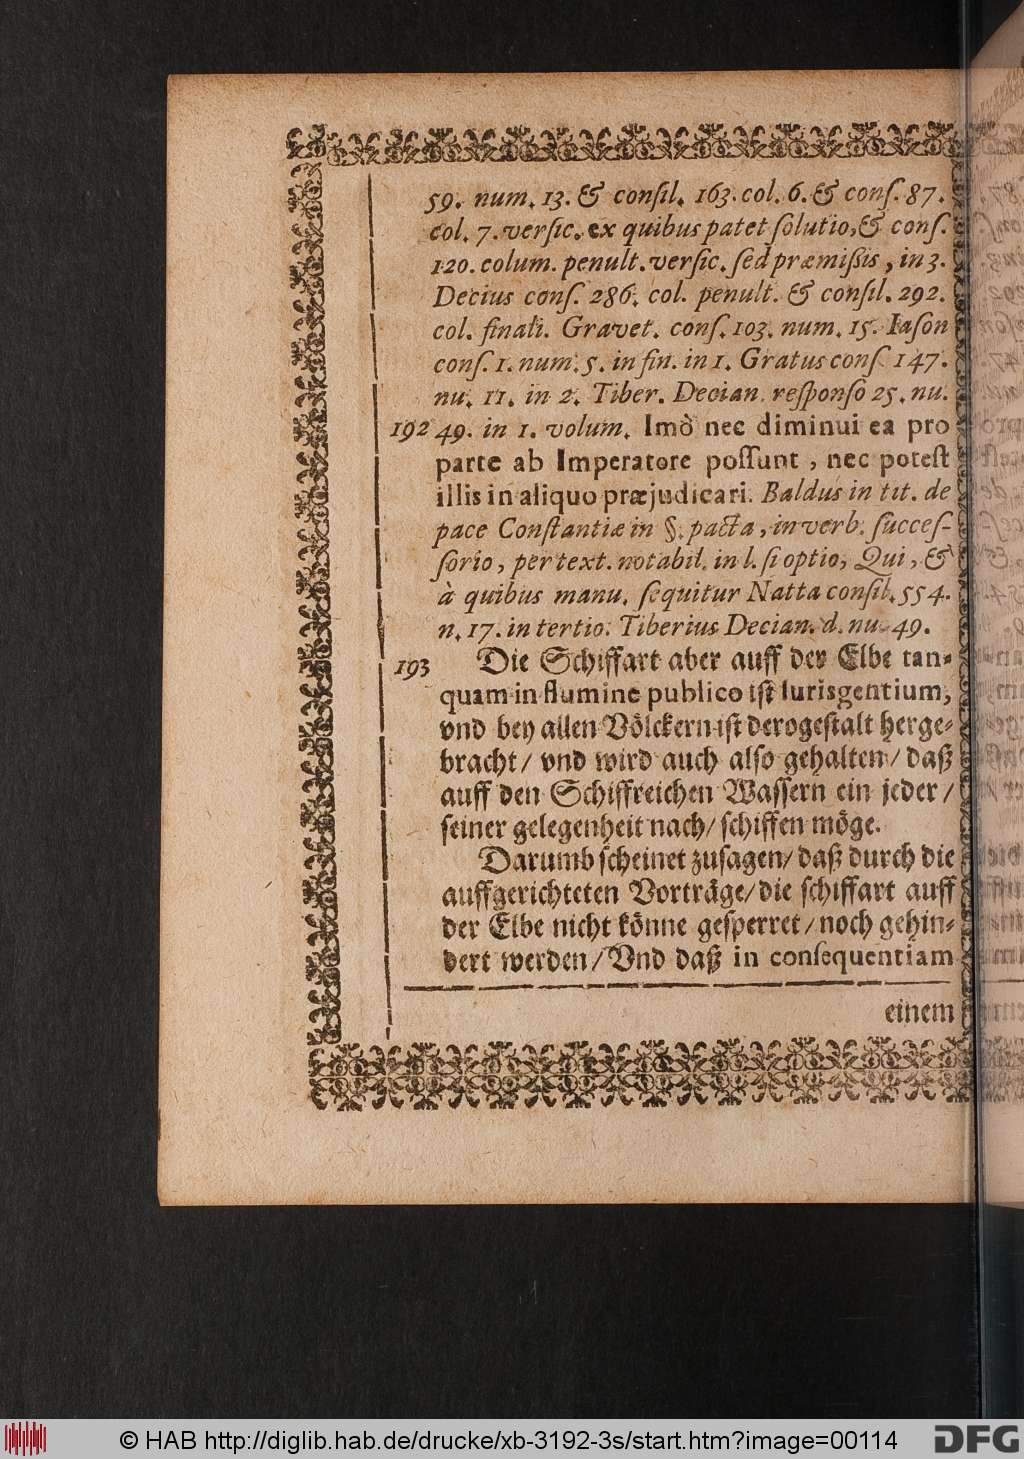 59. num. 13. & consil. 163. col. 6. & conſ. 87.
col. 7. verſic. ex quibus patet ſolutio, & conſ.
120. colum. penult. verſic. ſed præmiſsis, in 3.
Decius conſ. 286. col. penult. & conſil. 292.
col. finali. Gravet. conſ. 103. num. 15. Iaſon
conſ. 1. num. 5. in fin. in 1. Gratus conſ. 147.
nu. 11. in 2. Tiber. Decian. reſponſo 25. nu.
192 49. in 1. volum. Imò nec diminui ea pro
parte ab Imperatore poſſunt, nec poteſt
illis in aliquo præjudicari. Baldus in tit. de
pace Conſtantiæ in §. pacta, in verb. ſucceſ-
ſorio, per text. notabil. in l. ſi optio, Qui, &
à quibus manu. ſequitur Natta conſil. 554.
n. 17. in tertio. Tiberius Decian. d. nu. 49.
193 Die Schiffart aber auff der Elbe tan-
quam in flumine publico iſt Iurisgentium,
vnd bey allen Völckern iſt derogeſtalt herge-
bracht/ vnd wird auch alſo gehalten/ daß
auff den Schiffreichen Waſſern ein jeder/
ſeiner gelegenheit nach/ ſchiffen möge.
Darumb ſcheinet zuſagen/ daß durch die
auffgerichteten Vorträge/ die ſchiffart auff
der Elbe nicht könne geſperret/ noch gehin-
dert werden/ Vnd daß in conſequentiam
einem
© HAB http://diglib.hab.de/drucke/xb-3192-3s/start.htm?image=00114
DFG